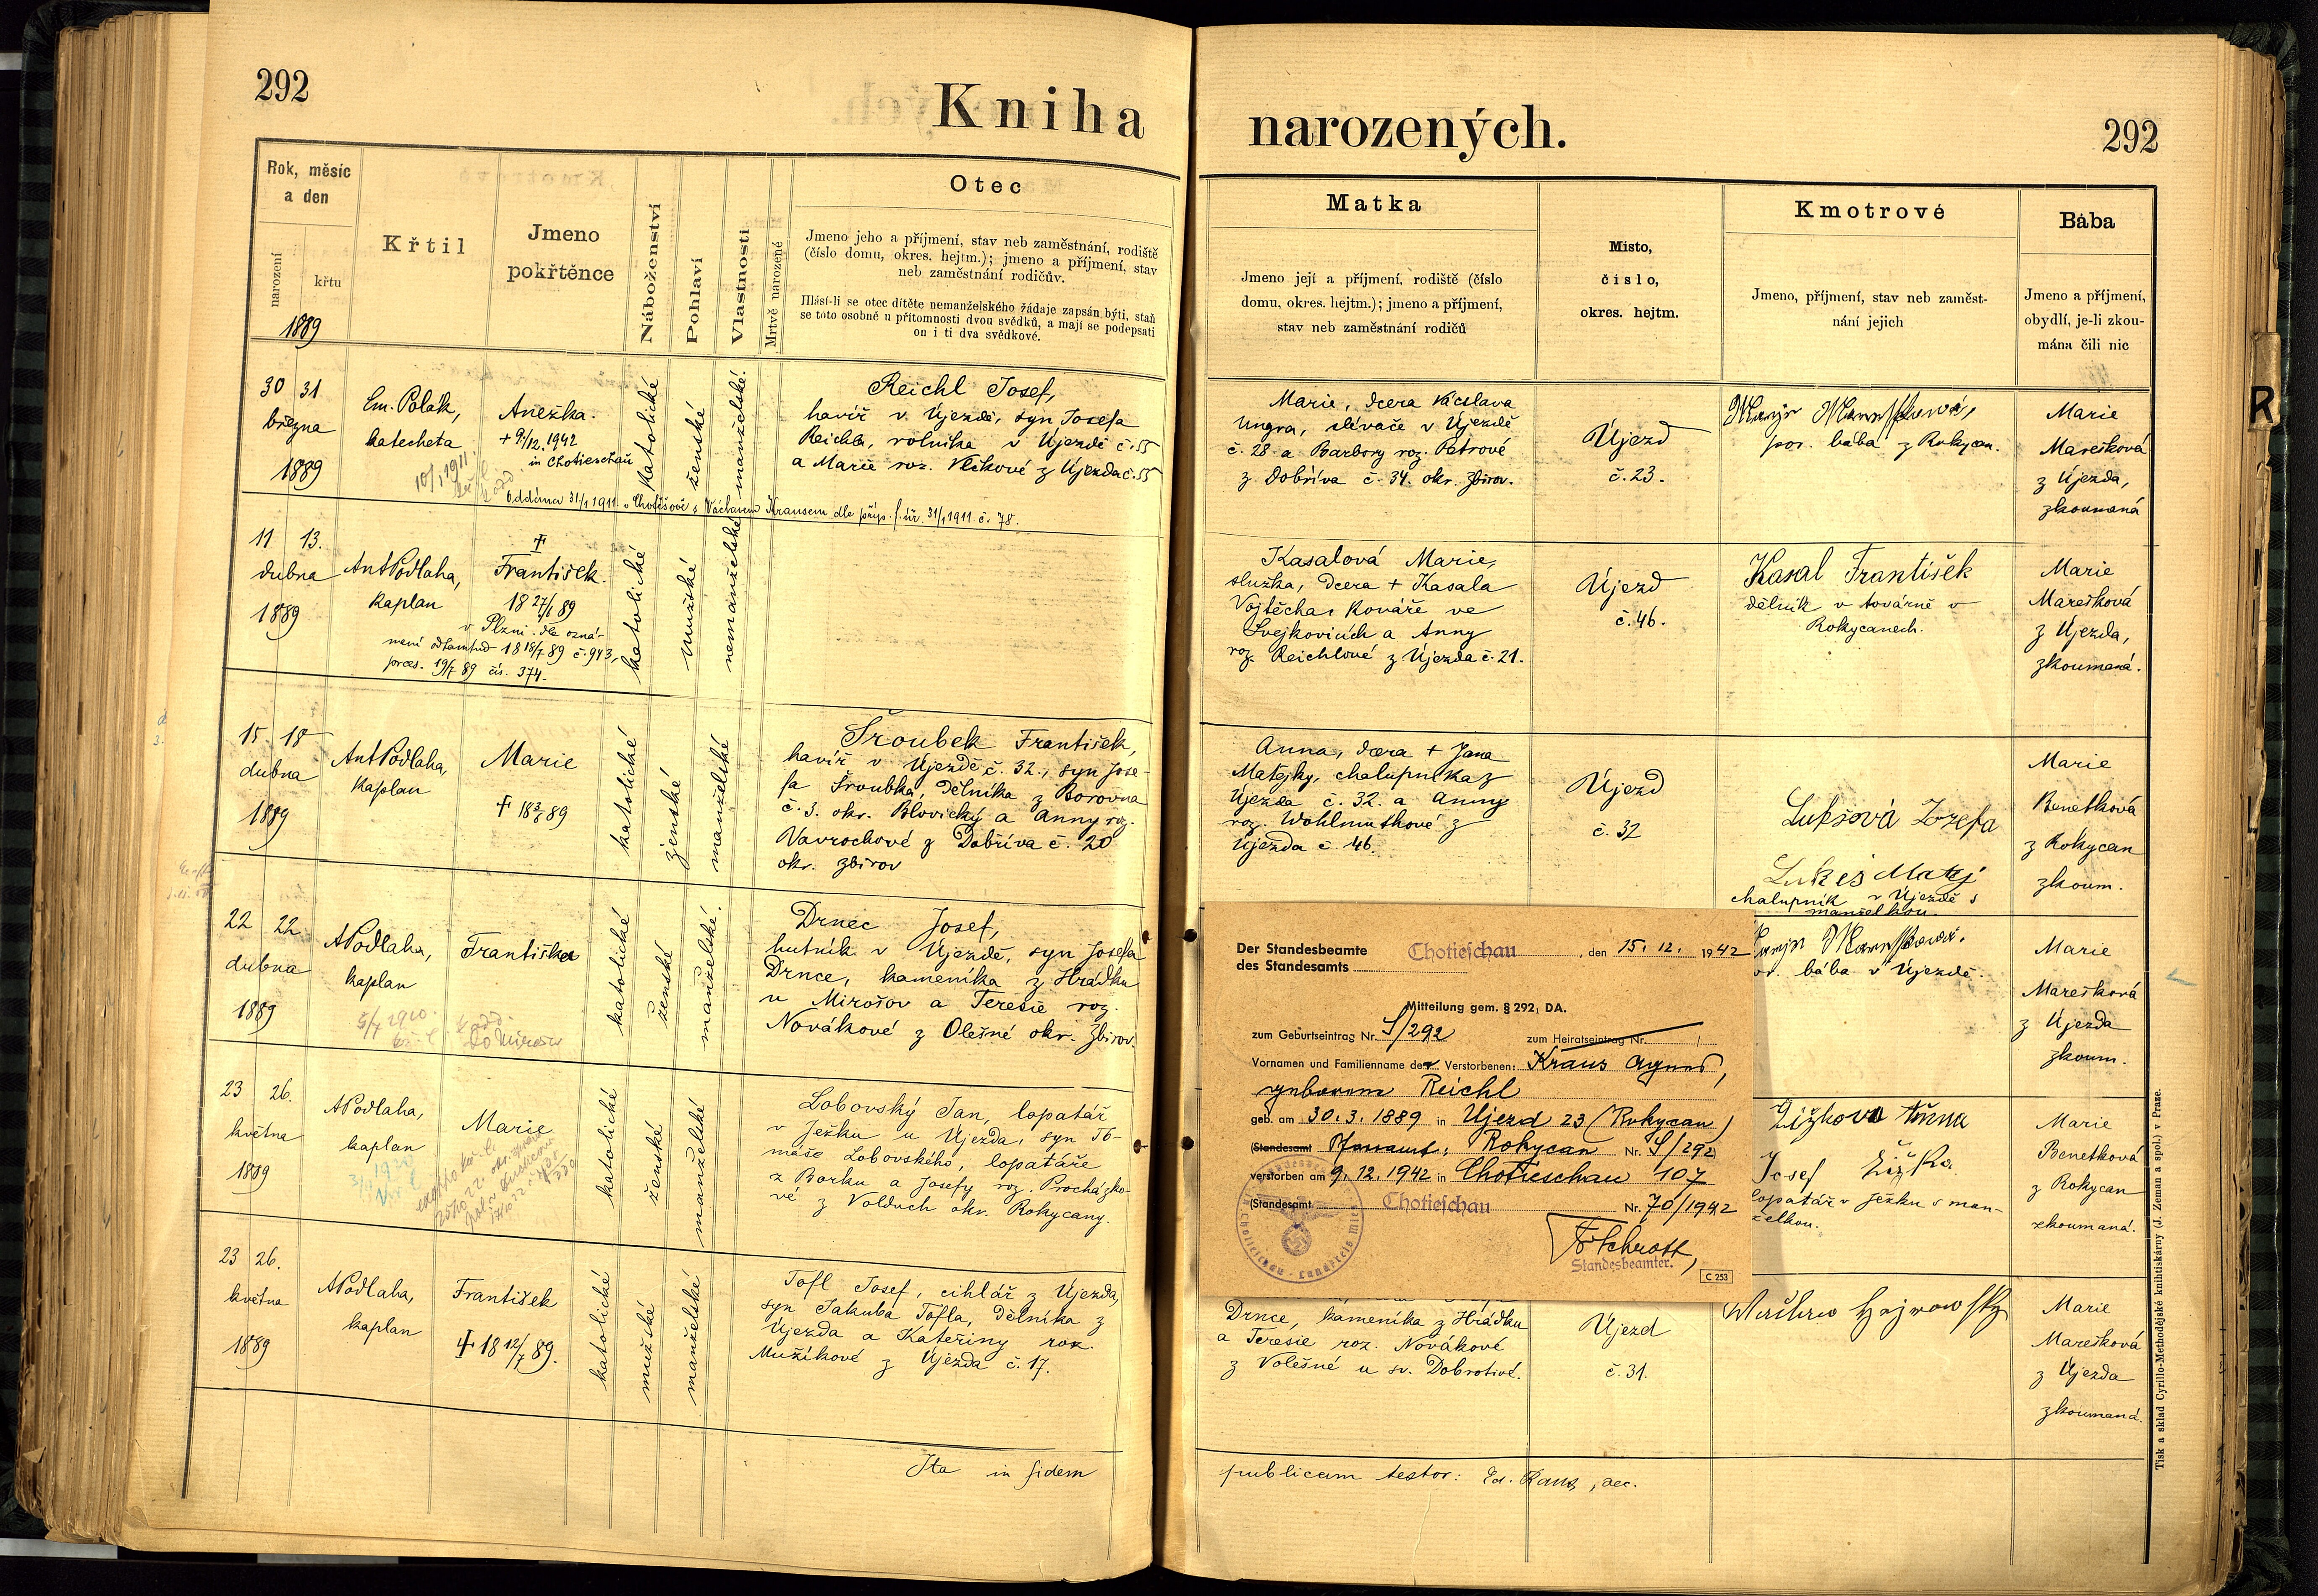 292
Kniha
narozených.
292
Rok, měsíc
a den
narození
křtu
1889
Křtil
Jmeno
pokřtěnce
Náboženství
Pohlaví
Vlastnosti
Mrtvě narozené
Otec
Jmeno jeho a příjmení, stav neb zaměstnání, rodiště
(číslo domu, okres. hejtm.); jmeno a příjmení, stav
neb zaměstnání rodičův.
Hlásí-li se otec dítěte nemanželského žádaje zapsán býti, staň
se toto osobně u přítomnosti dvou svědků, a mají se podepsati
on i ti dva svědkové.
Matka
Jmeno její a příjmení, rodiště (číslo
domu, okres. hejtm.); jmeno a příjmení,
stav neb zaměstnání rodičů
Místo,
číslo,
okres. hejtm.
Kmotrové
Jmeno, příjmení, stav neb zaměst-
nání jejich
Bába
Jmeno a příjmení,
obydlí, je-li zkou-
mána čili nic
30 31
března
1889
Em. Polák,
katecheta
10/1 1911
Anežka.
+ 9/12. 1942
in Chotieschau
katolické
ženské
manželské.
Reichl Josef,
havíř v Újezdě, syn Josefa
Reichla, rolníka v Újezdě č. 55
a Marie roz. Vlčkové z Újezda č. 55
Oddána 31/1 1911 v Chotěšově s Václavem Krausem dle příp. f. úř. 31/1 1911. č. 78.
Marie, dcera Václava
Ungra, slévače v Újezdě
č. 28 a Barbory roz. Petrové
z Dobříva č. 34. okr. Zbirov.
Újezd
č. 23.
por. bába z Rokycan.
Marie
Marešková
z Újezda,
zkoumaná
11 13.
dubna
1889
Ant Podlaha,
kaplan
†
František.
18 27/6 89
v Plzni. dle ozná-
mení odtamtud 18 15/7 89 č. 943,
praes. 19/7 89 čís. 374.
katolické
mužské
nemanželské
Kasalová Marie,
služka, dcera + Kasala
Vojtěcha, kováře ve
Švejkovicích a Anny
roz. Reichlové z Újezda č. 21.
Újezd
č. 46.
Kasal František
dělník v továrně v
Rokycanech.
Marie
Marešková
z Újezda,
zkoumaná.
15. 18
dubna
1889
Ant Podlaha,
kaplan
Marie
† 18 3/7 89
katolické
ženské
manželské
Šroubek František,
havíř v Újezdě č. 32., syn Jose-
fa Šroubka, dělníka z Borovna
č. 3. okr. Blovický a Anny roz.
Navrockové z Dobříva č. 20
okr. Zbirov
Anna, dcera + Jana
Matějky, chalupníka z
Újezda č. 32. a Anny
roz. Wohlmuthové z
Újezda č. 46.
Újezd
č. 32
Lukšová Jozefa
Lukeš Matěj
chalupník v Újezdě s
manželkou.
Marie
Benetková
z Rokycan
zkoum.
22 22
dubna
1889
A Podlaha,
kaplan
5/7 1920.
Františka
katolické
ženské
manželské.
Drnec Josef,
hutník v Újezdě, syn Josefa
Drnce, kameníka z Hrádku
u Mirošov a Teresie roz.
Novákové z Olešné okr. Zbirov.
bába v Újezdě.
Marie
Marešková
z Újezda
zkoum.
Der Standesbeamte
des Standesamts Chotieschau, den 15. 12. 1942
Mitteilung gem. § 292, DA.
zum Geburtseintrag Nr. S/292 zum Heiratseintrag Nr. /
Vornamen und Familienname der Verstorbenen: Kraus Agnes,
geborene Reichl
geb. am 30. 3. 1889 in Ujezd 23 (Rokycan)
(Standesamt Pfarramt: Rokycan Nr. S/292
verstorben am 9. 12. 1942 in Chotieschau 107
(Standesamt Chotieschau Nr. 70/1942
Standesbeamter.
C 253
23 26.
května
1889
A Podlaha,
kaplan
Marie
katolické
ženské
manželské
Lobovský Jan, lopatář
v Ježku u Újezda, syn To-
máše Lobovského, lopatáře
z Borku a Josefy roz. Procházko-
vé z Volduch okr. Rokycany.
Žižkova Anna
Josef Žižka
lopatář v Ježku s man-
želkou.
Marie
Benetková
z Rokycan
zkoumaná.
23 26.
května
1889
A Podlaha,
kaplan
František
† 18 12/7 89.
katolické
mužské
manželské
Tofl Josef, cihlář z Újezda,
syn Jakuba Tofla, dělníka z
Újezda a Kateřiny roz.
Mužíkové z Újezda č. 17.
Drnce, kameníka z Hrádku
a Teresie roz. Novákové
z Volešné u sv. Dobrotivé.
Újezd
č. 31.
Marie
Marešková
z Újezda
zkoumaná.
Ita in fidem
publicam testor: Ed. Rané, dec.
Tisk a sklad Cyrillo-Methodějské knihtiskárny (J. Zeman a spol.) v Praze.
R